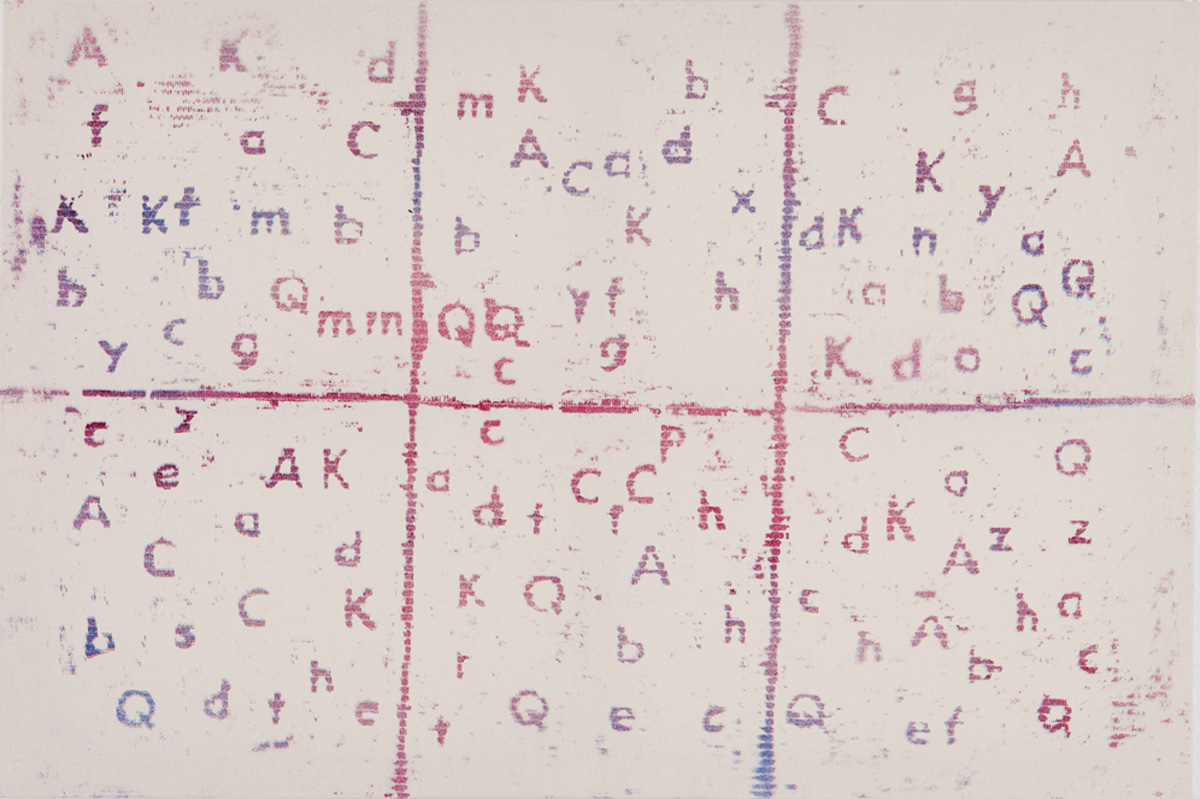 A K d
f a C
K t K t m b
b b Q m m
y c g
m K b
A C a d
b K x
Q Q Y f h
c g
C g h
K y A
d K n a
a b Q Q
K d o c
c z
e A K
A a
C d
C K
b s h
Q d t e
c p
a C C
d t f h
K Q A
r b h
t Q e c
C a Q
d K z z
A
c A h a
h b c
Q e f Q